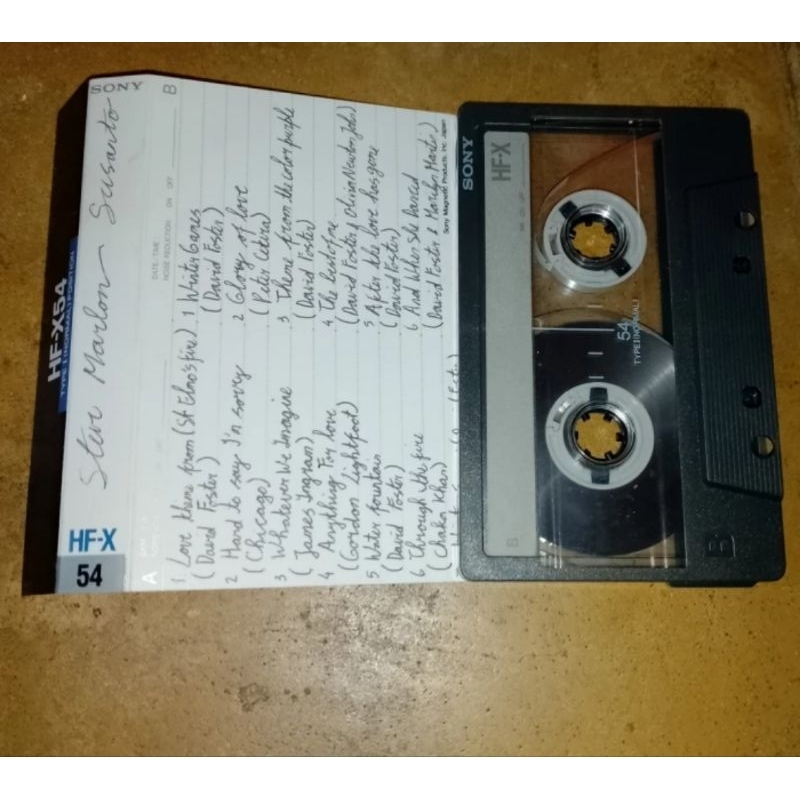 SONY
Steve Marlon Susanto
HF-X
54
HF-X54
TYPE I (NORMAL) POSITION
A
1. Love theme from (St Elmo's fire)
(David Foster)
2 Hard to say I'm sorry
(Chicago)
3 Whatever We Imagine
(James Ingram)
4 Anything For love
(Gordon Lightfoot)
5 Water fountain
(David Foster)
6 Through the fire
(Chaka Khan)
B
DATE/TIME
NOISE REDUCTION ON OFF
1 Winter Games
(David Foster)
2 Glory of love
(Peter Cetera)
3 Theme from the color purple
(David Foster)
4 The best of me
(David Foster & Olivia Newton John)
5 After the love has gone
(David Foster)
6 And When she danced
(David Foster & Marilyn Martin)
Sony Magnetic Products Inc. Japan
SONY
HF-X
54
TYPE I (NORMAL)
B
B